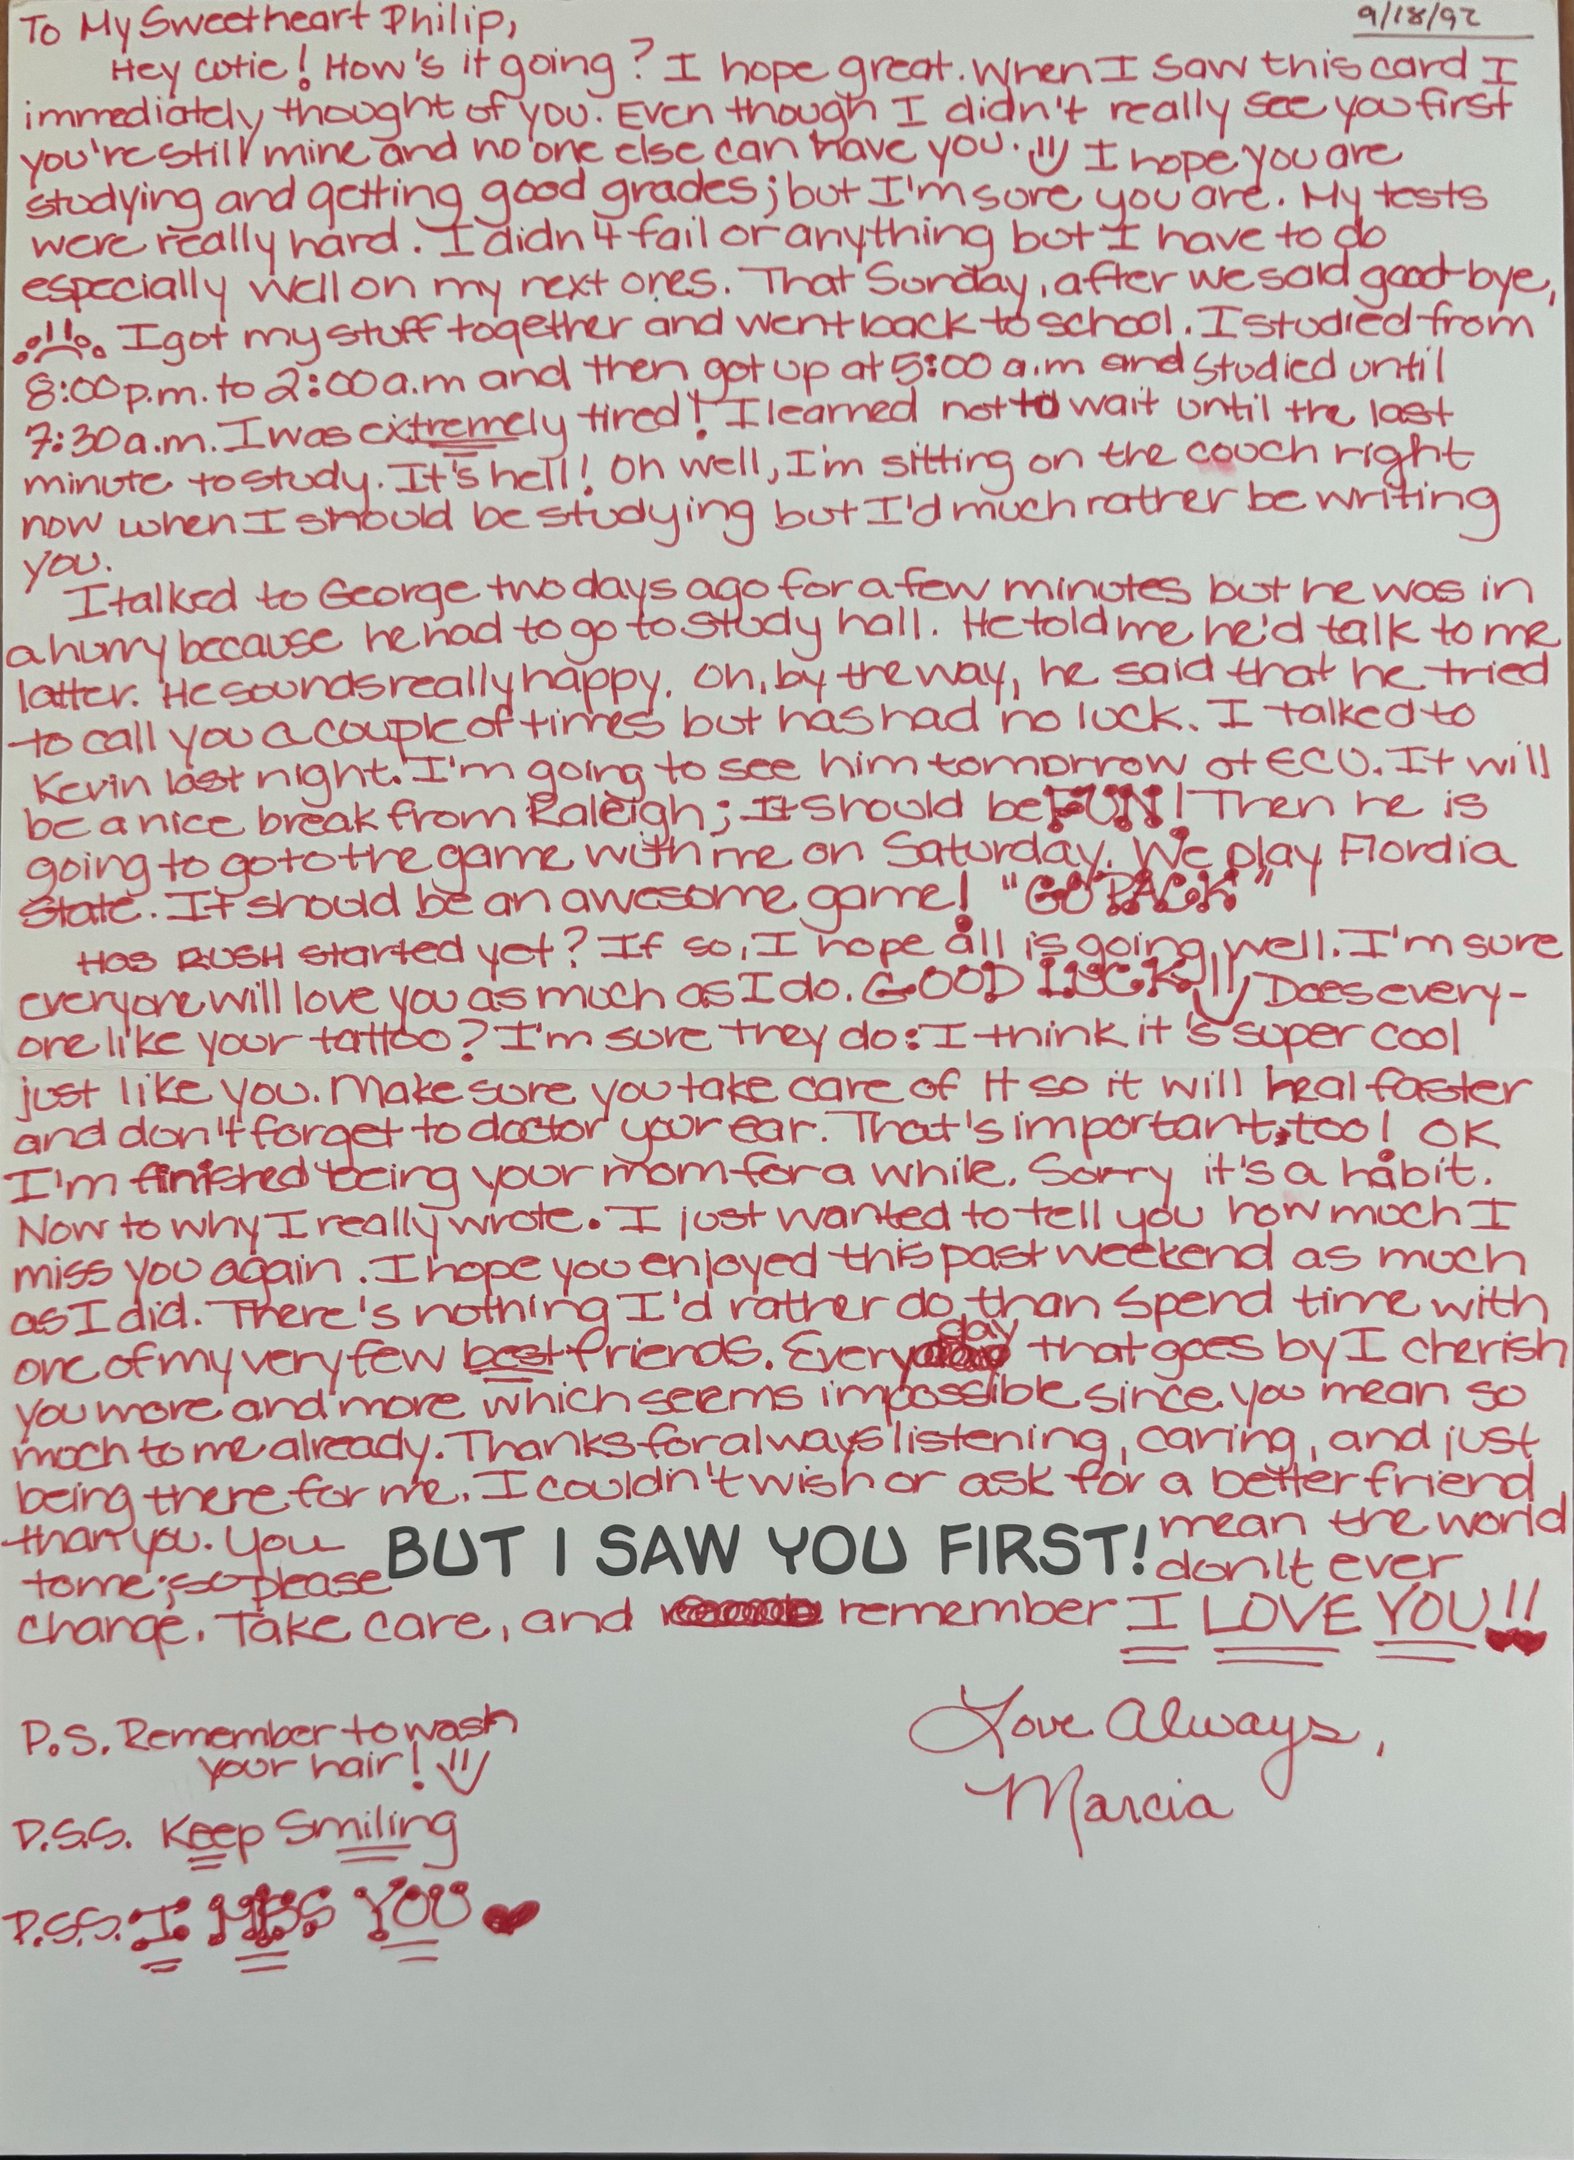 9/18/92
To My Sweetheart Philip,
Hey cutie! How's it going? I hope great. When I saw this card I
immediately thought of you. Even though I didn't really see you first
you're still mine and no one else can have you. I hope you are
studying and getting good grades; but I'm sure you are. My tests
were really hard. I didn't fail or anything but I have to do
especially well on my next ones. That Sunday, after we said good-bye,
I got my stuff together and went back to school. I studied from
8:00 p.m. to 2:00 a.m and then got up at 5:00 a.m and studied until
7:30 a.m. I was extremely tired! I learned not to wait until the last
minute to study. It's hell! Oh well, I'm sitting on the couch right
now when I should be studying but I'd much rather be writing
you.
I talked to George two days ago for a few minutes but he was in
a hurry because he had to go to study hall. He told me he'd talk to me
latter. He sounds really happy. Oh, by the way, he said that he tried
to call you a couple of times but has had no luck. I talked to
Kevin last night. I'm going to see him tomorrow at ECU. It will
be a nice break from Raleigh; It should be FUN! Then he is
going to go to the game with me on Saturday. We play Flordia
State. It should be an awesome game! "GO PACK"
Has RUSH started yet? If so, I hope all is going well. I'm sure
everyone will love you as much as I do. GOOD LUCK! Does every-
one like your tattoo? I'm sure they do: I think it's super cool
just like you. Make sure you take care of it so it will heal faster
and don't forget to doctor your ear. That's important, too! OK
I'm finished being your mom for a while. Sorry it's a habit.
Now to why I really wrote. I just wanted to tell you how much I
miss you again. I hope you enjoyed this past weekend as much
as I did. There's nothing I'd rather do than spend time with
one of my very few best friends. Every day that goes by I cherish
you more and more which seems impossible since you mean so
much to me already. Thanks for always listening, caring, and just
being there for me. I couldn't wish or ask for a better friend
than you. You mean the world
BUT I SAW YOU FIRST!
to me; so please don't ever
change. Take care, and remember I LOVE YOU!!
Love Always,
Marcia
P.S. Remember to wash
your hair!
P.S.S. Keep Smiling
P.S.S. I MISS YOU